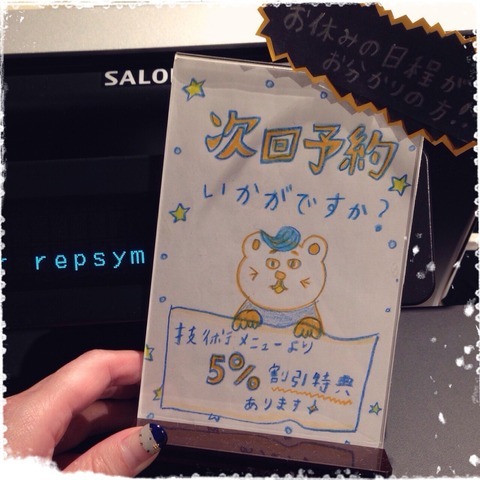 お休みの日程が
お分かりの方!!
SALO
repsym
次回予約
いかがですか?
技術メニューより
5%割引特典
あります